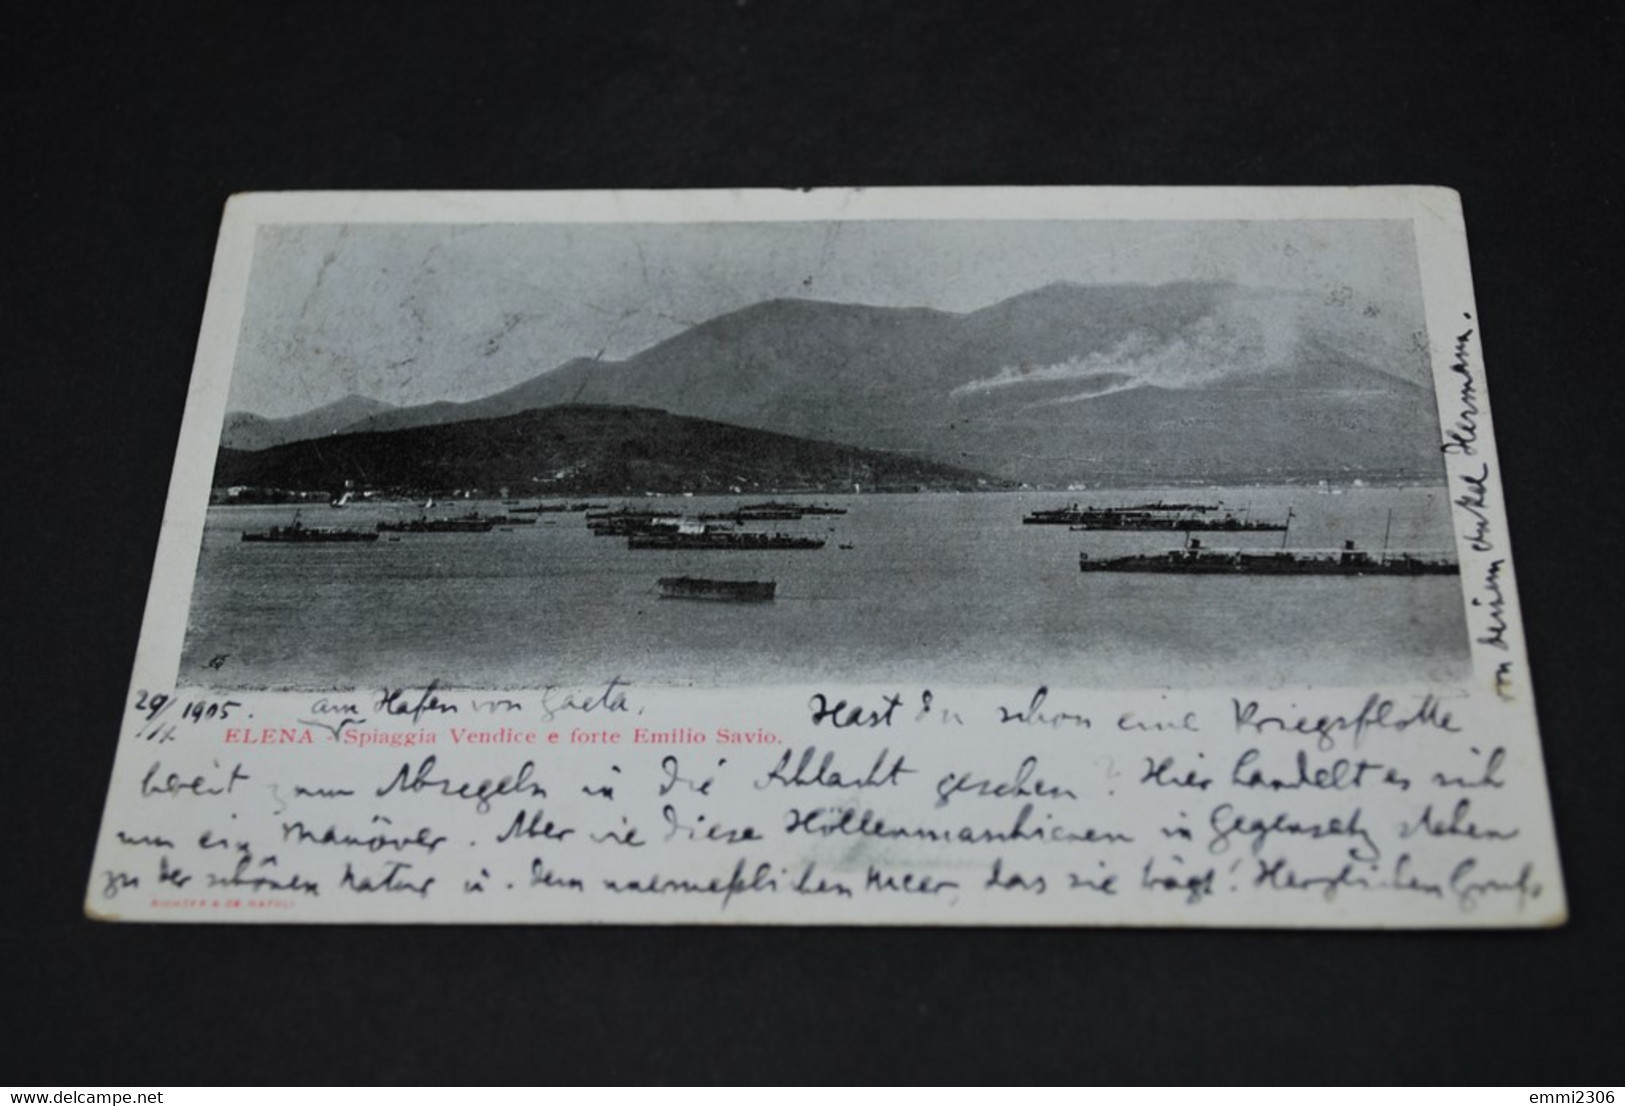 29/IX 1905. am Hafen von Gaëta. Hast Du schon eine Kriegsflotte
ELENA - Spiaggia Vendice e forte Emilio Savio.
bereit zum Absegeln in die Schlacht gesehen? Hier handelt es sich
um ein Manöver. Aber wie diese Höllenmaschienen in Gegensatz stehen
zu der schönen Natur u. dem unermeßlichen Meer, das sie trägt! Herzlichen Gruß
von deinem Onkel Hermann.
RICHTER & Co. NAPOLI
delcampe.net
emmi2306